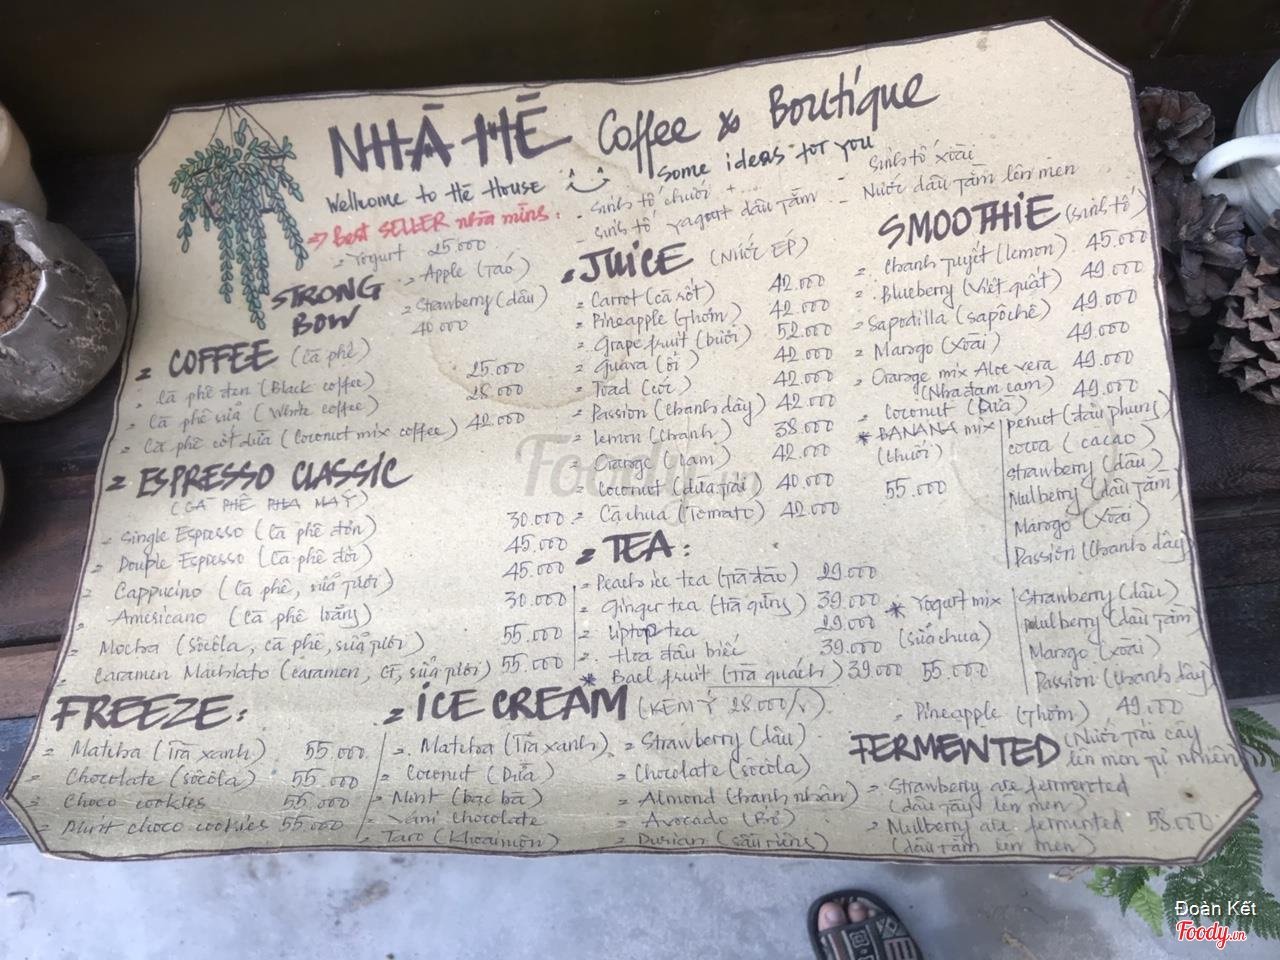 NHÀ HÊ Coffee & Boutique
Wellcome to Hê House
some ideas for you
=> Best SELLER nhà mình:
- Sinh tố chuối + ...
- Sinh tố yagout dâu tằm
- Sinh tố xoài
- Nước dâu tằm lên men
= Yogurt 25.000
STRONG BOW
- Apple (táo)
- Strawberry (dâu)
40.000
= COFFEE (Cà phê)
Cà phê đen (Black coffee) 25.000
Cà phê sữa (White coffee) 28.000
Cà phê cốt dừa (Coconut mix coffee) 42.000
= ESPRESSO CLASSIC
(CÀ PHÊ PHA MÁY)
Single Espresso (Cà phê đơn) 30.000
Double Espresso (Cà phê đôi) 45.000
Cappucino (Cà phê, sữa tươi) 45.000
Americano (Cà phê loãng) 30.000
Mocha (sôcôla, cà phê, sữa tươi) 55.000
Caramen Machiato (caramen, CF, sữa tươi) 55.000
FREEZE:
= Matcha (Trà xanh) 55.000
= Chocolate (sôcôla) 55.000
= Choco cookies 55.000
= Mint choco cookies 55.000
= JUICE (NƯỚC ÉP)
= Carrot (cà rốt) 42.000
= Pineapple (Thơm) 42.000
= Grape fruit (bưởi) 52.000
= Guava (ổi) 42.000
= Toad (cóc) 42.000
= Passion (chanh dây) 42.000
= lemon (chanh) 38.000
= Orange (cam) 42.000
= Coconut (dừa trái) 40.000
= Cà chua (Tomato) 42.000
= TEA:
= Peach ice tea (Trà đào) 29.000
= Ginger tea (trà gừng) 39.000
= Liptop tea 29.000
= Hoa đậu biếc 39.000
* Bael fruit (Trà quách) 39.000
= ICE CREAM (KEM Ý 28.000/v)
= Matcha (Trà xanh)
= Coconut (Dừa)
= Mint (bạc hà)
= Vani chocolate
= Taro (Khoai môn)
= Strawberry (dâu)
= Chocolate (sôcôla)
= Almond (hạnh nhân)
= Avocado (Bơ)
= Durian (sầu riêng)
SMOOTHIE (sinh tố)
= Chanh tuyết (lemon) 45.000
= Blueberry (Việt quất) 49.000
= Sapodilla (sapôchê) 49.000
= Mango (Xoài) 49.000
= Orange mix Aloe vera 49.000
(Nha đam cam)
= Coconut (Dừa) 49.000
* BANANA mix
(chuối)
55.000
penut (đậu phụng)
cocoa (cacao)
strawberry (dâu)
Mulberry (dâu tằm)
Mango (Xoài)
Passion (chanh dây)
* Yogurt mix
(sữa chua)
55.000
Strawberry (dâu)
Mulberry (dâu tằm)
Mango (xoài)
Passion (chanh dây)
= Pineapple (Thơm) 49.000
FERMENTED (Nước trái cây
lên men tự nhiên)
= Strawberry are fermented
(dâu tây lên men)
= Mulberry are fermented 58.000
(dâu tằm lên men)
Foody.vn
Đoàn Kết
Foody.vn